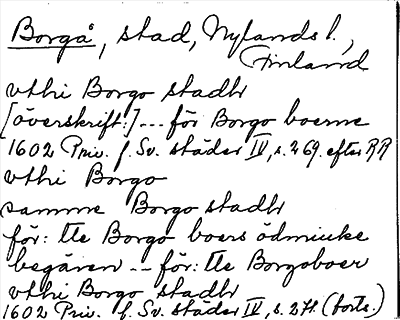 Borgå, stad, Nylands l.,
Finland
vthi Borgo stadh
[överskrift:] -- för Borgo boerne
1602 Priv. f. Sv. städer IV, s. 269. efter RR
vthi Borgo
samme Borgo stadh
för: tte Borgo boers ödmiuke
begären -- för: tte Borgoboer
vthi Borgo stadh
1602 Priv. f. Sv. städer IV, s. 271. (forts.)